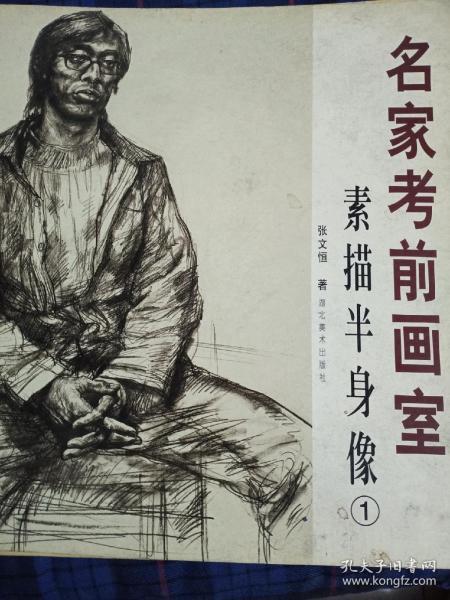 名家考前画室
素描半身像①
张文恒 著
湖北美术出版社
孔夫子旧书网
www.kongfz.com